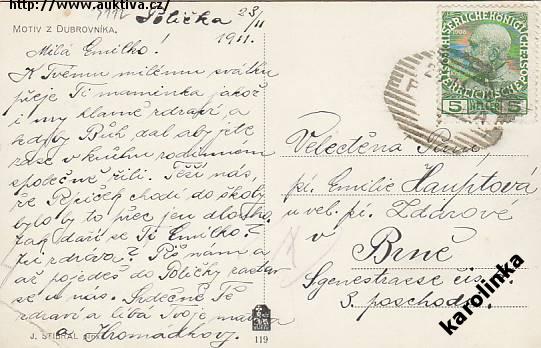 www.auktiva.cz
Polička 23/11
1911.
MOTIV Z DUBROVNÍKA.
Milá Emilko!
K Tvému milému svátku
přeje Ti maminka jakož
i my hlavně zdraví a
kdyby Bůh dal aby jste
zase v kruhu rodinném
společně žili. Těší nás,
že Pepíček chodí do školy
bylo by to přec jen dlouho.
Jak daří se Ti Emilko?
Jsi zdráva? Piš nám a
až pojedeš do Poličky zastav
se u nás. Srdečně Tě
zdraví a líbá Tvoje
a Hromádkovy.
J. STIBRAL
119
1908
5 HELLER 5
Velectěna Paní,
pí. Emilie Hauptová
u vel. pí. Zdarové
v
Brně
3. poschodí.
karolinka